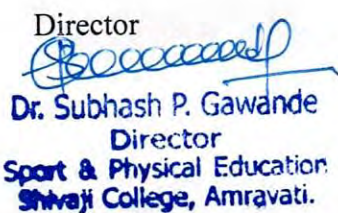 Director
Dr. Subhash P. Gawande
Director
Sport & Physical Education
Shivaji College, Amravati.